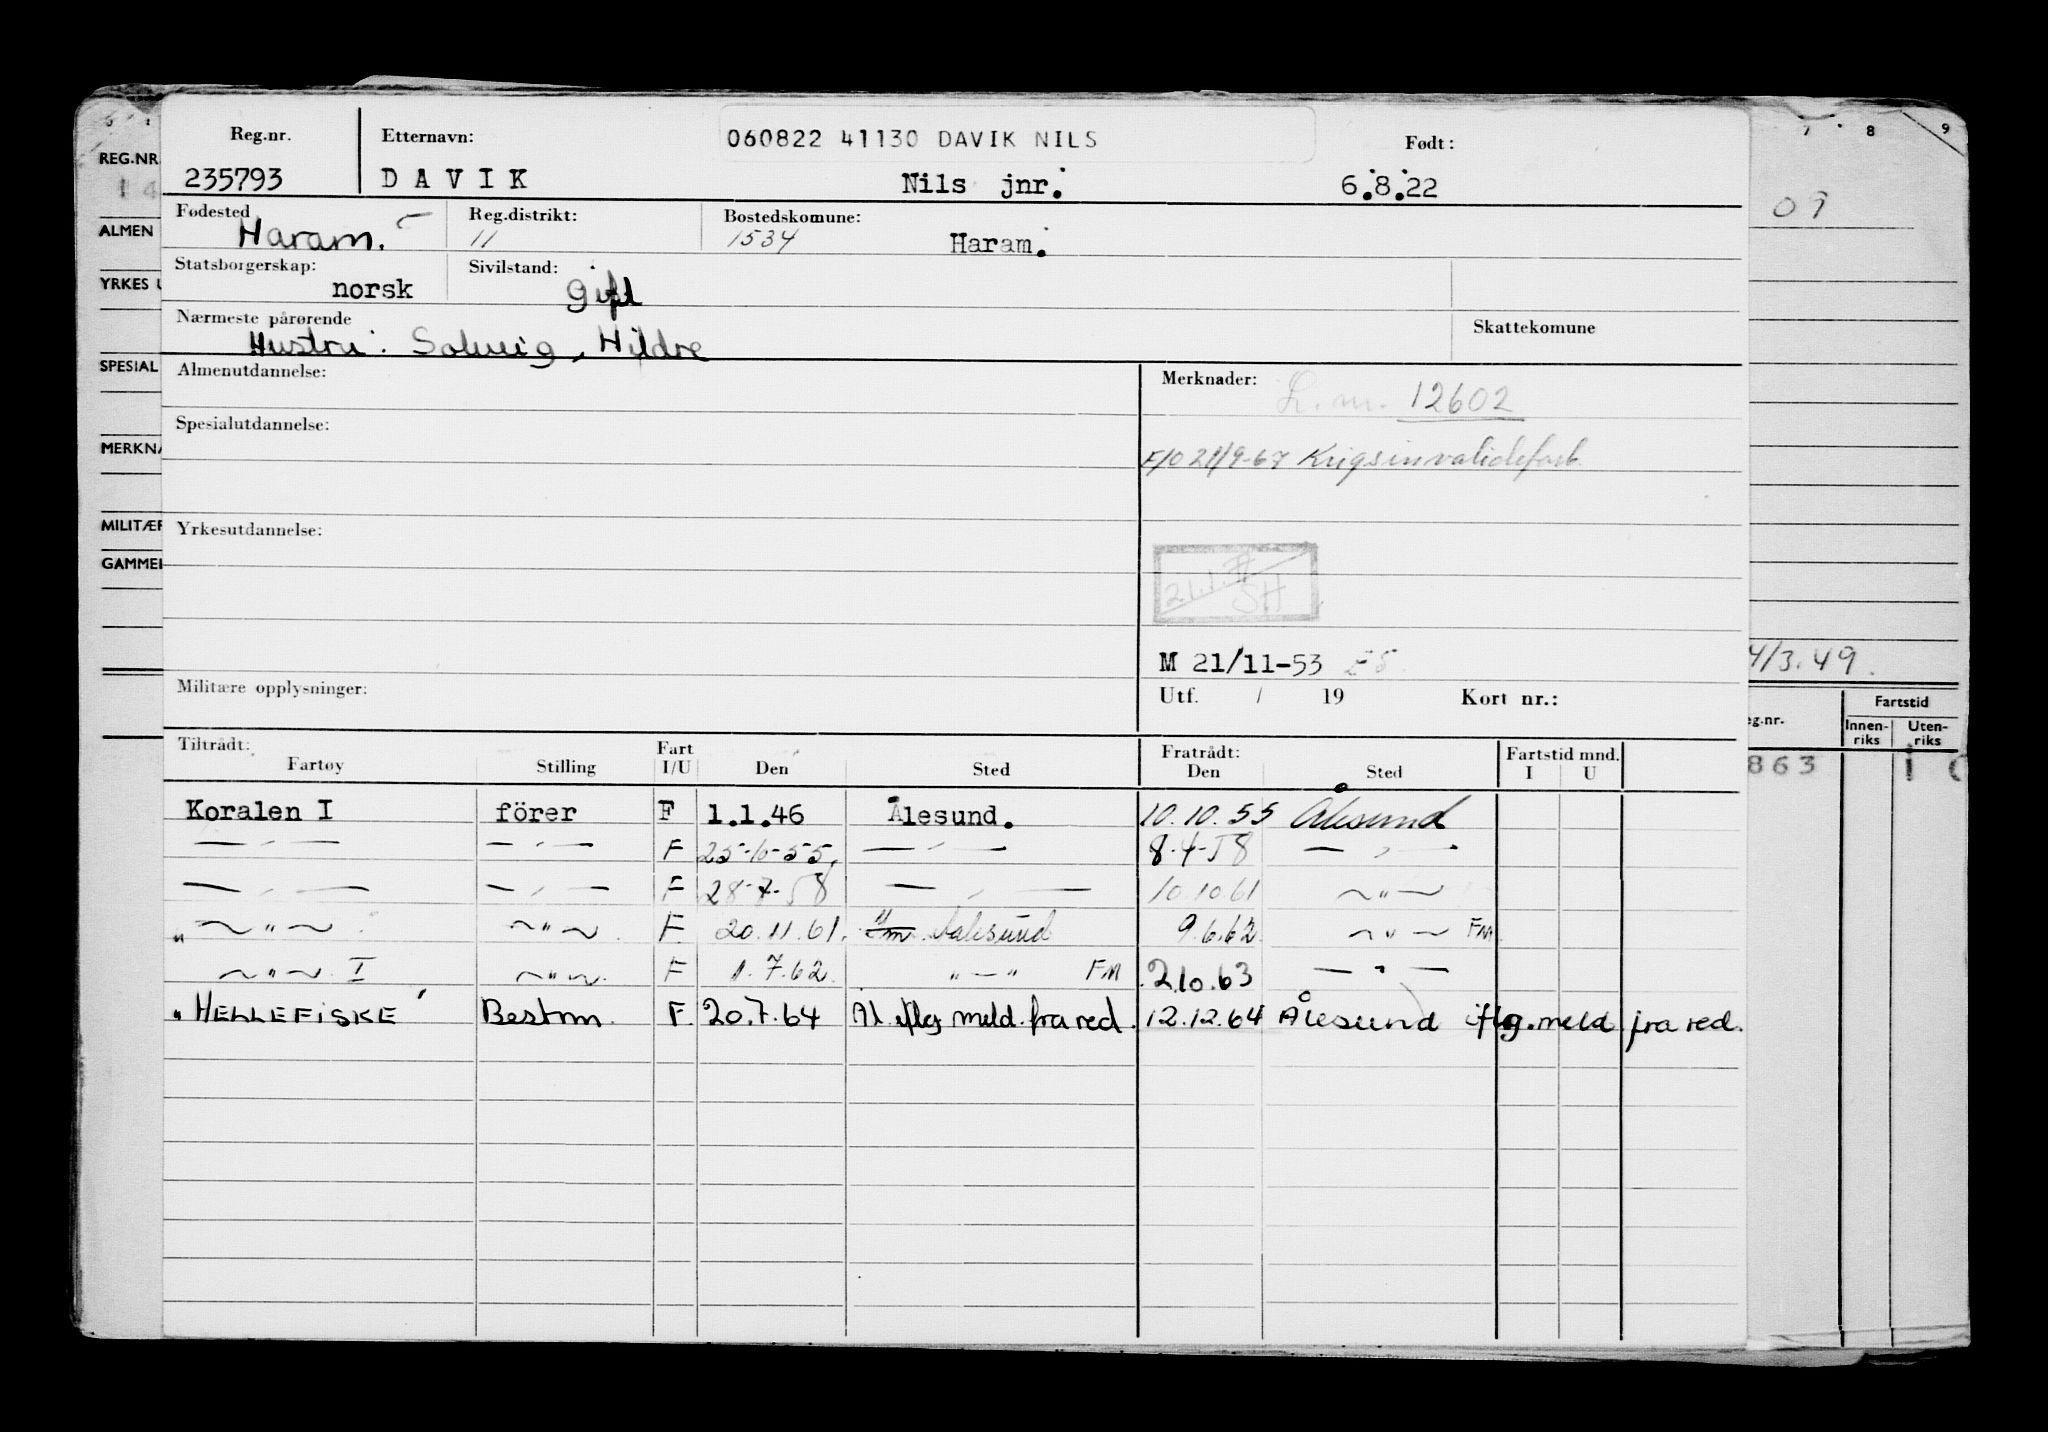 Reg.nr. Etternavn: 060822 41130 DAVIK NILS Født:
235793 DAVIK Nils jnr. 6.8.22
Fødested Reg.distrikt: Bostedskomune:
Haram. 11 1534 Haram.
Statsborgerskap: Sivilstand:
norsk Gift
Nærmeste pårørende Skattekomune
Hustru: Solveig, Hildre
Almenutdannelse: Merknader:
L.m. 12602
Spesialutdannelse:
F/O 21/9-67 Krigsinvalideforb.
Yrkesutdannelse:
21.1.
SH
M 21/11-53
Militære opplysninger: Utf. / 19 Kort nr.:
Tiltrådt: Fart Fratrådt: Fartstid mnd.
Fartøy Stilling I/U Den Sted Den Sted I U
Koralen I förer F 1.1.46 Ålesund. 10.10.55 Ålesund
— " — — " — F 25-10-55. — " — 8-4-58 — " —
— " — — " — F 28-7-58 — " — 10.10.61 ~ " ~
" ~ " ~ ~ " ~ F 20.11.61. Aalesund 9.6.62 ~ " ~ FM
~ " ~ I ~ " ~ F 1.7.62. " — " FM 2.10.63 — " —
"HELLEFISKE" Bestm. F. 20.7.64 Al. iflg meld. fra red. 12.12.64 Ålesund iflg. meld. fra red.
REG.NR.
14
ALMEN
YRKES U
SPESIAL
MERKNA
MILITÆR
GAMMEL
7 8 9
09
4/3.49.
eg.nr. Fartstid
Innen-riks Uten-riks
863 1 0